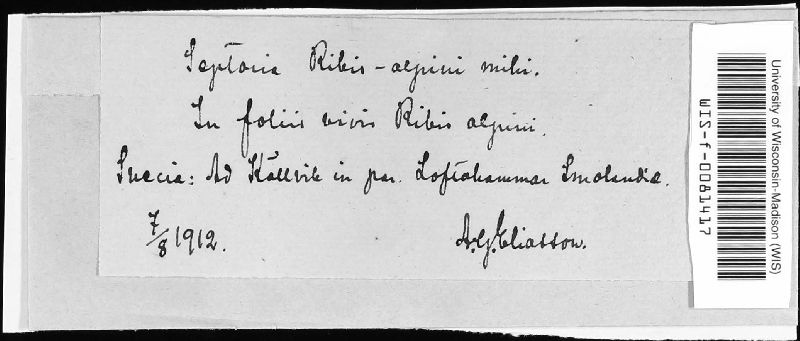 Septoria Ribis-alpini mihi.
In foliis vivis Ribis alpini.
Suecia: Ad Källvik in par. Loftahammar Smolandiæ.
7/8 1912.
A.G. Eliasson.
University of Wisconsin-Madison (WIS)
WIS-f-0081417